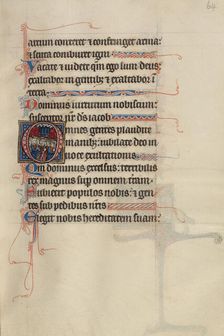 64
arcum conteret et confringet arma:
et scuta comburet igni.
Vacate et videte qm ego sum deus:
exaltabor in gentib; et exaltabor i
terra.
Dominus virtutum nobiscum:
susceptor nr deus iacob
Omnes gentes plaudite
manib; iubilate deo in
voce exultationis.
Qm dominus excelsus: terribilis
rex magnus sup omnem tram.
Subiecit populos nobis: et gen
tes sub pedibus nris
Elegit nobis hereditatem suam: